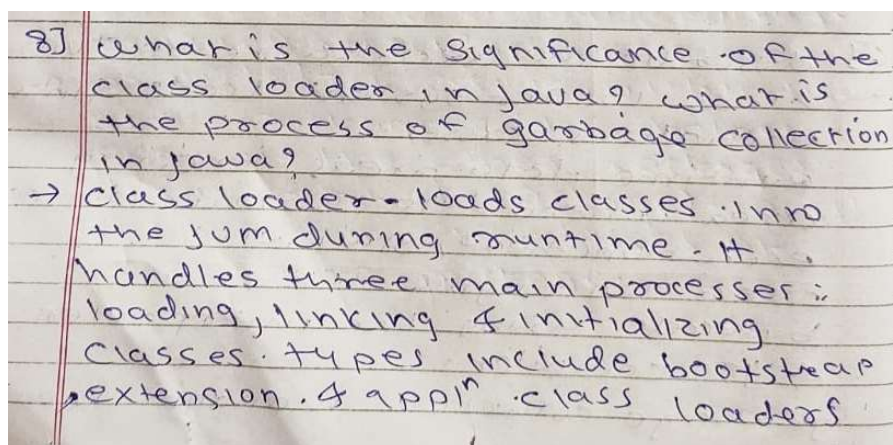 8] what is the significance of the
class loader in java? what is
the process of garbage collection
in java?
→ class loader - loads classes into
the jvm during runtime. It
handles three main processes:
loading, linking & initializing
classes. types include bootstrap
extension. & appln class loaders